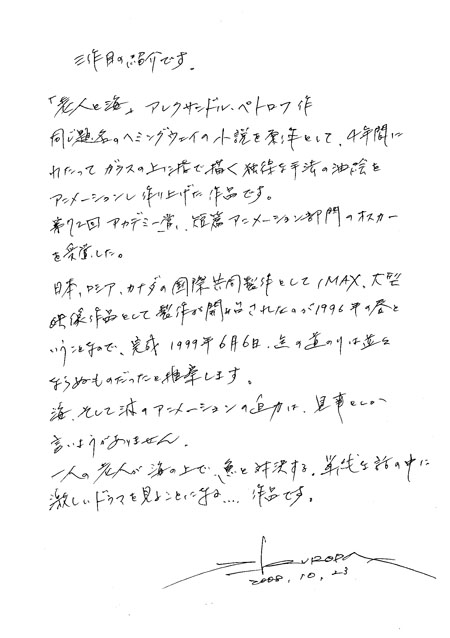 三作目の紹介です。
「老人と海」 アレクサンドル・ペトロフ作
同じ題名のヘミングウェイの小説を原作として、4年間に
わたって ガラスの上に指で描く独特な手法の油絵を
アニメーションし 作り上げた 作品です。
第72回 アカデミー賞、短篇アニメーション部門のオスカー
を受賞した。
日本、ロシア、カナダの国際共同製作としてIMAX、大型
映像作品として製作が開始されたのが1996年の春と
いうことなので、完成 1999年6月6日、その道のりは並々
ならぬものだったと推察します。
海、そして波のアニメーションの迫力は、見事としか
言いようがありません。
一人の老人が海の上で、魚と対決する。単純な話の中に
激しいドラマを見ることになる.... 作品です。
2008.10.23